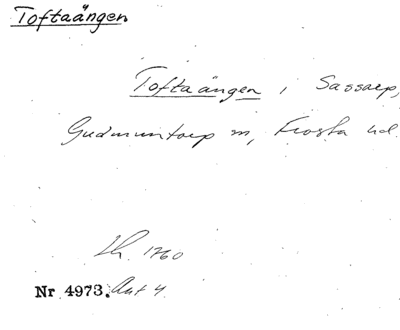 Toftaängen
Toftaängen i Sassarp,
Gudmuntorp sn, Frosta hd.
Lh. 1760
Nr 4973. Akt 4